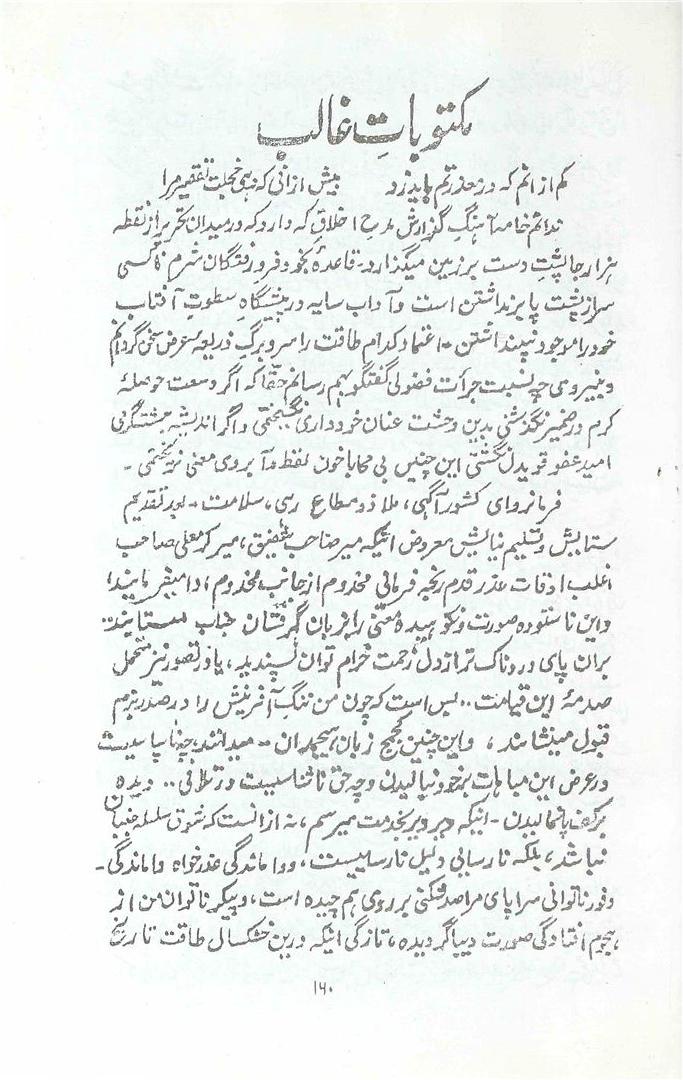 مکتوباتِ غالب
کم از انم که در عذرتم پذیرد بیش از انی که نهی خجلت تقصیر مرا
ندانم خامه آهنگِ گزارش طرحِ اخلاق که دارد که در میدان تحریر از نقطه
هزار جا پشتِ دست بر زمین میگذارد۔ قاعدۂ بخود فرو رفتگان شرم ناکسی
سر از پشت پا بر نداشتن است و آداب سایه در پیشگاهِ سطوتِ آفتاب
خود را موجود نپنداشتن ۔ اعتماد کدام طاقت را سر و برگ ذریعه عرض سخن گردانم
و نیروی چه نسبت جرأت فضولی گفتگو بهم رسانم حقا که اگر وسعت حوصلۂ
کرم در ضمیر نگذشتی بدین وحشت عنان خودداری نگسیختمی و اگر اندیشه
امید عفو قویدل نگشتی این چنین بی محابا خون لفظ و آبروی معنی نریختمی ۔
فرمانروای کشور آگهی، ملاذ و مطاع رهی، سلامت ۔ بعد تقدیم
ستایش و تسلیم نیایش معروض اینکه میر صاحب شفیق، میر کرم علی صاحب
اغلب اوقات عذر قدم رنجه فرمائی مخدوم از جانب مخدوم ادا میفرمایند
و این ناستوده صورت و نکوهیده معنی را بزبان گهرفشان جناب میستایند۔
بران پای در دناک تر از دل زحمت خرام توان پسندید، یا در تصور نیز متحمل
صدمۂ این قیامت ۔۔ بس است که چون من ننگِ آفرینش را در صدر بزم
قبول مینشانند، و این چنین کج مج زبان هیچمدان ۔ میدانند،
در عرض این مباهات بر خود نبالیدن و چه حق ناشناسیست در تلافی ۔۔ دیده
بر کف پا نمالیدن ۔ اینکه دیر دیر بخدمت میرسم، نه از انست که شوق سلسله جنبان
نباشد، بلکه نارسایی دلیل نارساییست، و واماندگی عذر خواه واماندگی ۔
وفور ناتوانی سراپای مرا صد شکن بر روی هم چیده است، و پیکر ناتوان من از
هجوم افتادگی صورت دیبا گردیده، تازگی اینکه درین خشکسال طاقت تا رنج
۱۶۰